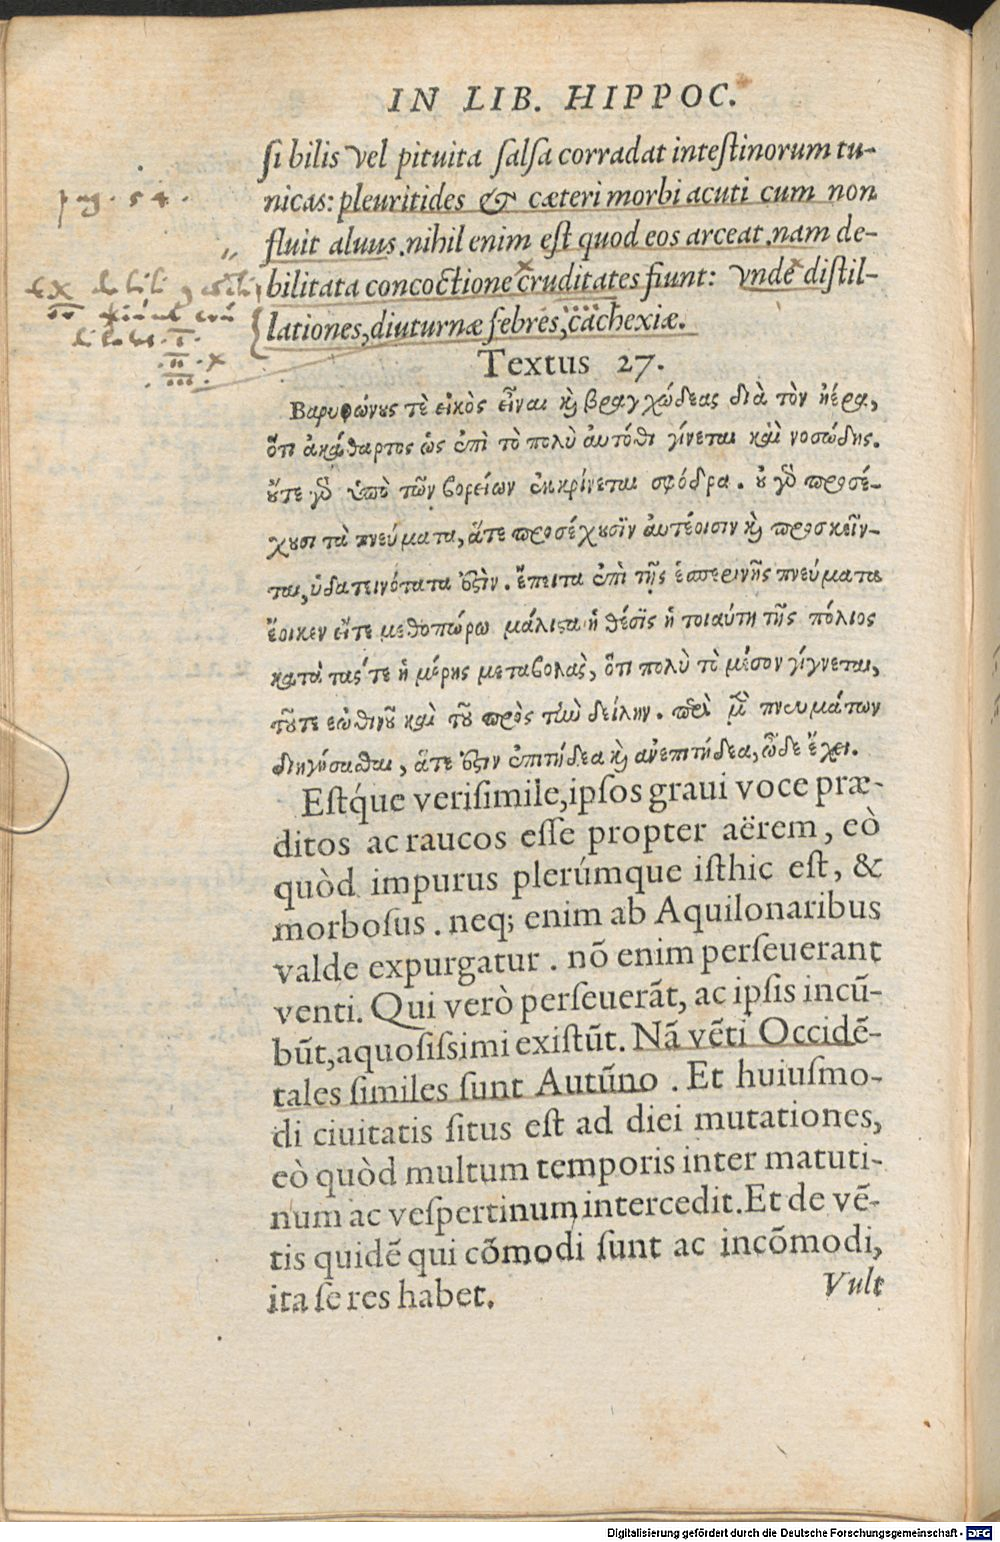 IN LIB. HIPPOC.
si bilis vel pituita salsa corradat intestinorum tu-
nicas: pleuritides & cæteri morbi acuti cum non
pag. 54.
fluit aluus. nihil enim est quod eos arceat. nam de-
bilitata concoctione cruditates fiunt: vnde distil-
lationes, diuturnæ febres, cachexiæ.
Textus 27.
Βαρυφώνους τὲ εἰκὸς εἶναι κὴ βραγχώδεας διὰ τὸν ἠέρα,
ὅτι ἀκάθαρτος ὡς ἐπὶ τὸ πολὺ αὐτόθι γίνεται καὶ νοσώδης.
οὔτε γὰρ ὑπὸ τῶν βορείων ἐκκρίνεται σφόδρα. οὐ γὰρ προσέ-
χουσι τὰ πνεύματα, ἅτε προσέχουσϊν αὐτέοισιν κὴ προσκεῖν-
ται, ὑδατεινότατα ἐστὶν. ἔπειτα ἐπὶ τῆς ἑσπερινῆς πνεύματα
ἔοικεν εἴτε μεθοπώρῳ μάλιστα ἡ θέσϊς ἡ τοιαύτη τῆς πόλιος
κατὰ τας τε ἡμέρης μεταβολὰς, ὅτι πολὺ τὸ μέσον γίγνεται,
τοῦτε ἑωθινοῦ καὶ τοῦ πρὸς τὴν δείλην. περὶ μὲν πνευμάτων
διηγήσασθαι, ἅτε ἐστὶν ἐπιτήδεα κὴ ἀνεπιτήδεα, ὧδε ἔχει.
Estq́ue verisimile, ipsos graui voce præ-
ditos ac raucos esse propter aërem, eò
quòd impurus plerúmque isthic est, &
morbosus. neq; enim ab Aquilonaribus
valde expurgatur. nō enim perseuerant
venti. Qui verò perseuerāt, ac ipsis incū-
būt, aquosissimi existūt. Nā vēti Occidē-
tales similes sunt Autūno. Et huiusmo-
di ciuitatis situs est ad diei mutationes,
eò quòd multum temporis inter matuti-
num ac vespertinum intercedit. Et de vē-
tis quidē qui cōmodi sunt ac incōmodi,
ita se res habet.
Vult
Digitalisierung gefördert durch die Deutsche Forschungsgemeinschaft - DFG